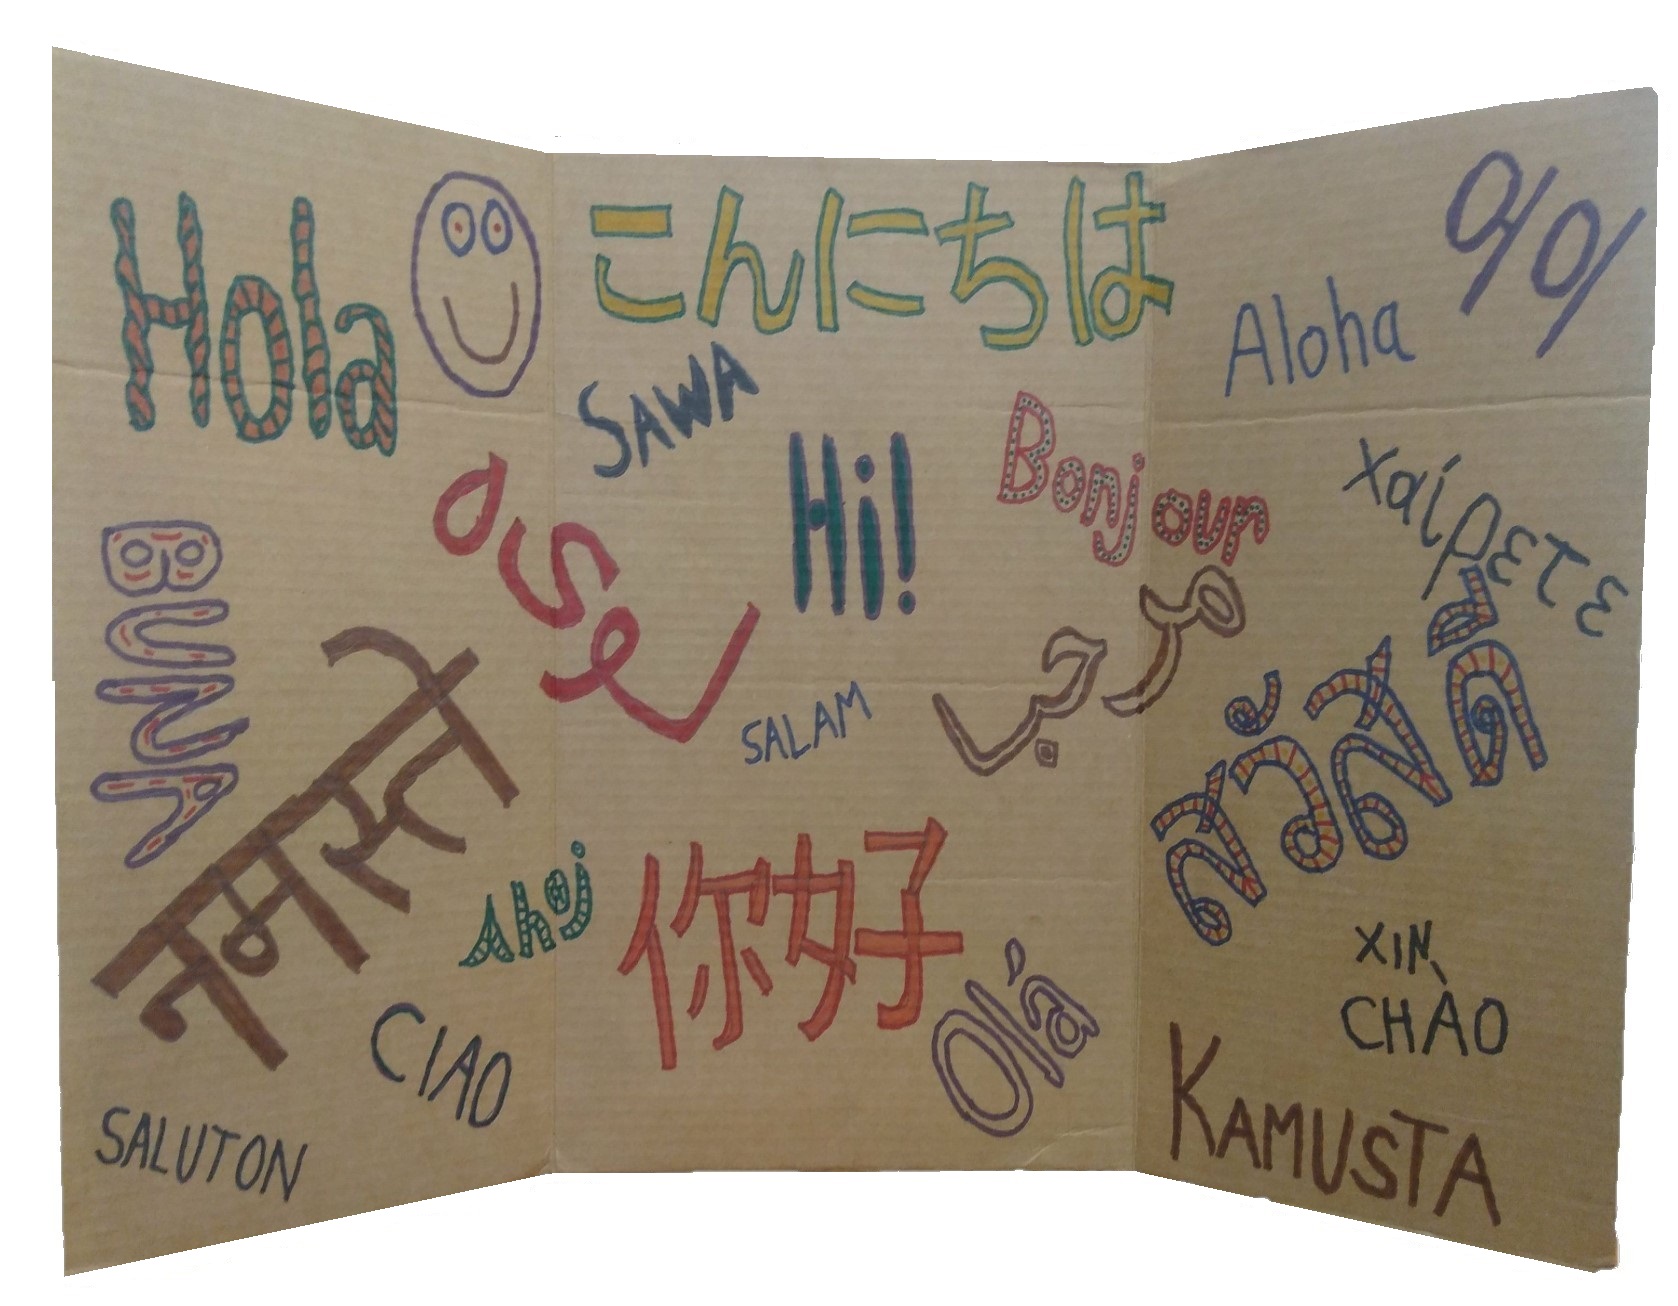 Hola
こんにちは
Aloha
SAWA
Hi!
Bonjour
Χαίρετε
BUNA
नमस्ते
SALAM
مرحبا
สวัสดี
Ahoj
你好
Olá
XIN
CHÀO
CIAO
KAMUSTA
SALUTON